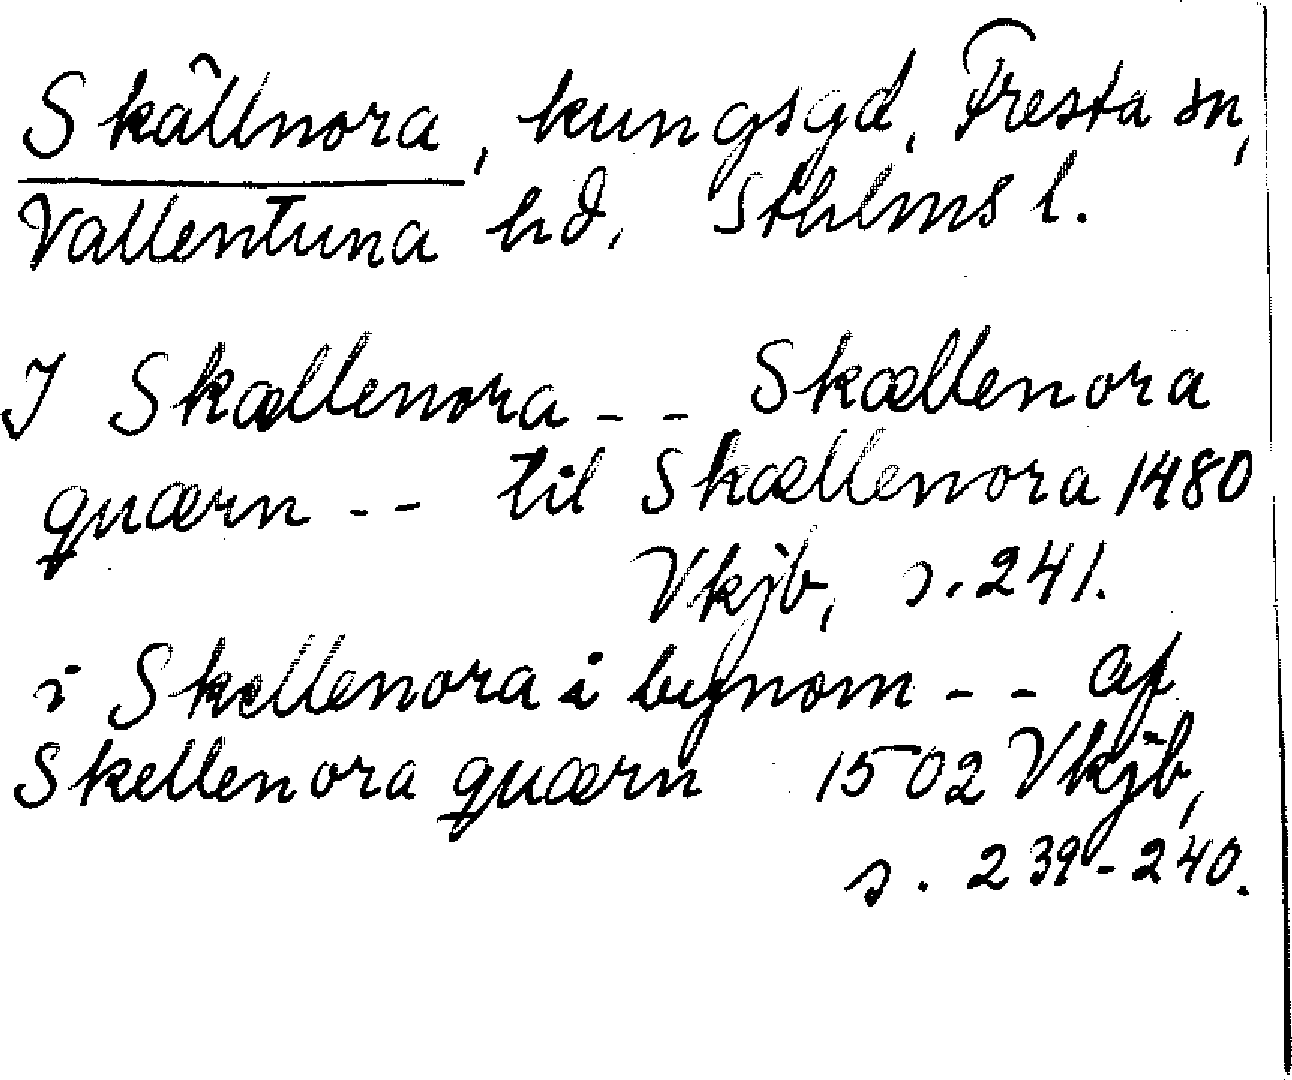 Skällnora, kungsgd, Fresta sn,
Vallentuna hd, Sthlms l.
I Skællenora -- Skællenora
quærn -- til Skællenora 1480
Vkjb, s. 241.
i Skellenora i bynom -- af
Skellenora quærn 1502 Vkjb,
s. 239-240.